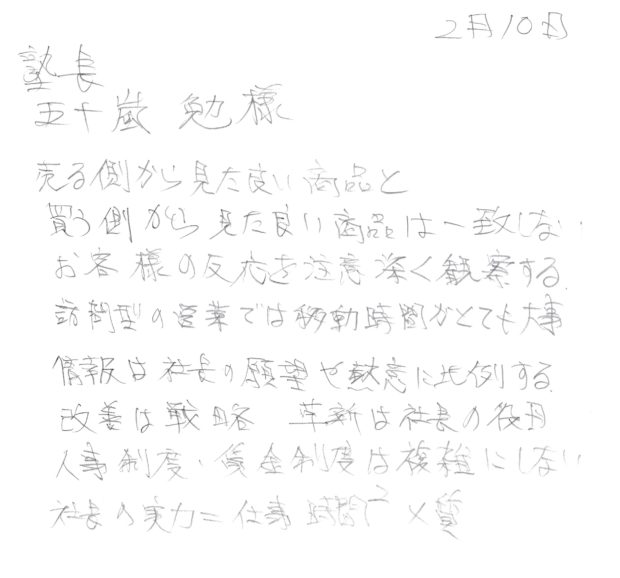 2月10日
塾長
五十嵐 勉様
売る側から見た良い商品と
買う側から見た良い商品は一致しない
お客様の反応を注意深く観察する
訪問型の営業では移動時間がとても大事
情報は社長の願望や熱意に比例する
改善は戦略 革新は社長の役目
人事制度・賃金制度は複雑にしない
社長の実力=仕事時間²×質